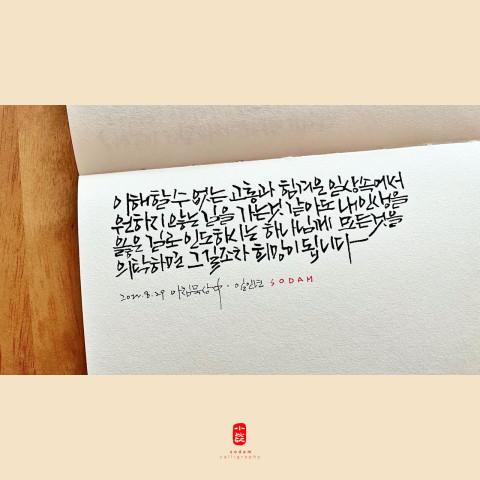 이해할 수 없는 고통과 힘겨운 일상속에서
원하지 않는 길을 가는것 같아도 내 인생을
옳은 길로 인도하시는 하나님께 모든것을
의탁하면 그 길조차 희망이 됩니다
2022.8.29 아침묵상中 · 임인년 SODAM
sodam
calligraphy